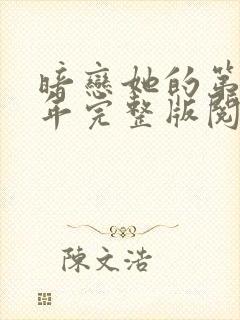 暗戀她的第
年完整版閱
陳文浩